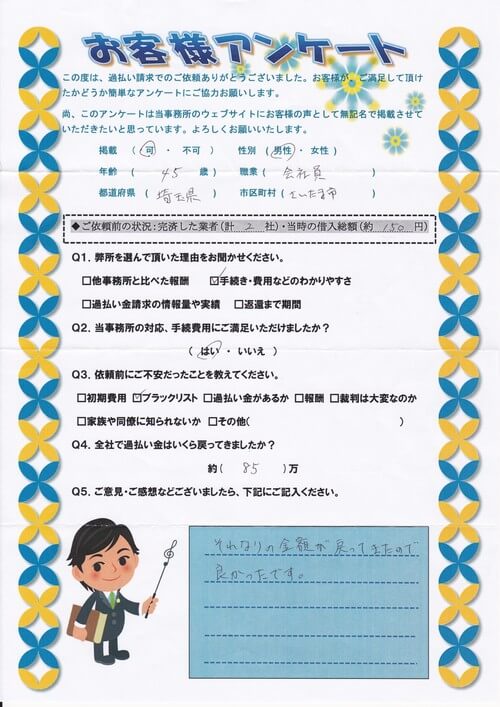 お客様アンケート
この度は、過払い請求でのご依頼ありがとうございました。お客様が、ご満足して頂け
たかどうか簡単なアンケートにご協力お願いします。
尚、このアンケートは当事務所のウェブサイトにお客様の声として無記名で掲載させて
いただきたいと思っています。よろしくお願いいたします。
掲載 ( 可 ・ 不可 ) 性別 ( 男性 ・ 女性 )
年齢 ( 45 歳 ) 職業 ( 会社員 )
都道府県 ( 埼玉県 ) 市区町村 ( さいたま市 )
◆ご依頼前の状況:完済した業者(計 2 社)・当時の借入総額(約 150 円)
Q1. 弊所を選んで頂いた理由をお聞かせください。
□他事務所と比べた報酬 ☑手続き・費用などのわかりやすさ
□過払い金請求の情報量や実績 □返還まで期間
Q2. 当事務所の対応、手続費用にご満足いただけましたか?
( はい ・ いいえ )
Q3. 依頼前にご不安だったことを教えてください。
□初期費用 ☑ブラックリスト □過払い金があるか □報酬 □裁判は大変なのか
□家族や同僚に知られないか □その他( )
Q4. 全社で過払い金はいくら戻ってきましたか?
約( 85 )万
Q5. ご意見・ご感想などございましたら、下記にご記入ください。
それなりの金額が戻ってきたので
良かったです。